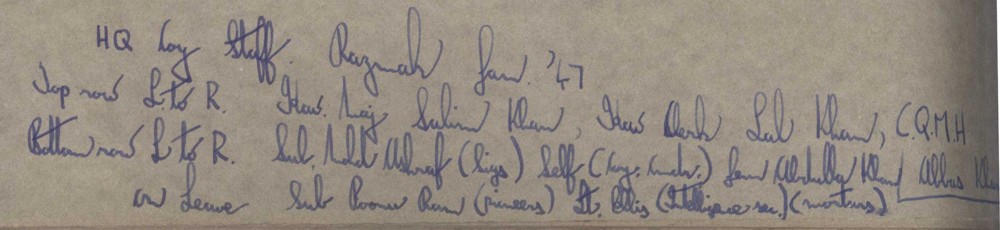 HQ Coy Staff. Razmak Jan. '47
Top row L. to R. Hav. Maj Salim Khan, Hav Clerk Lal Khan, C.Q.M.H
Bottom row L to R. Sub. Mohd Ashraf (Sigs) Self (Coy. Comdr.) Jem Abdullah Khan Abbas
on Leave Sub Poonu Ram (pioneers) Lt. Ellis (Intelligence sec.) (mortars)